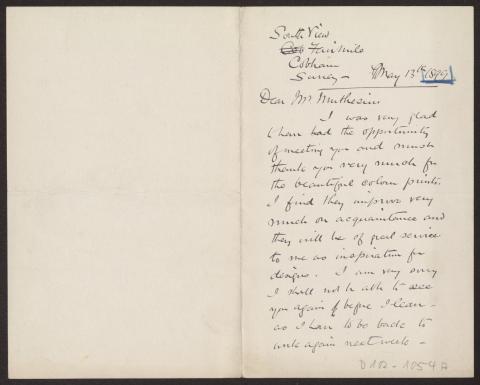 South View
Fairmile
Cobham
Surrey — May 13th 1899
Dear Mr Muthesius
I was very glad
to have had the opportunity
of meeting you and much
thank you very much for
the beautiful colour prints.
I find they improve very
much on acquaintance and
they will be of great service
to me as inspiration for
designs. I am very sorry
I shall not be able to see
you again before I leave –
as I have to be back to
work again next week –
D 102 - 1054 A